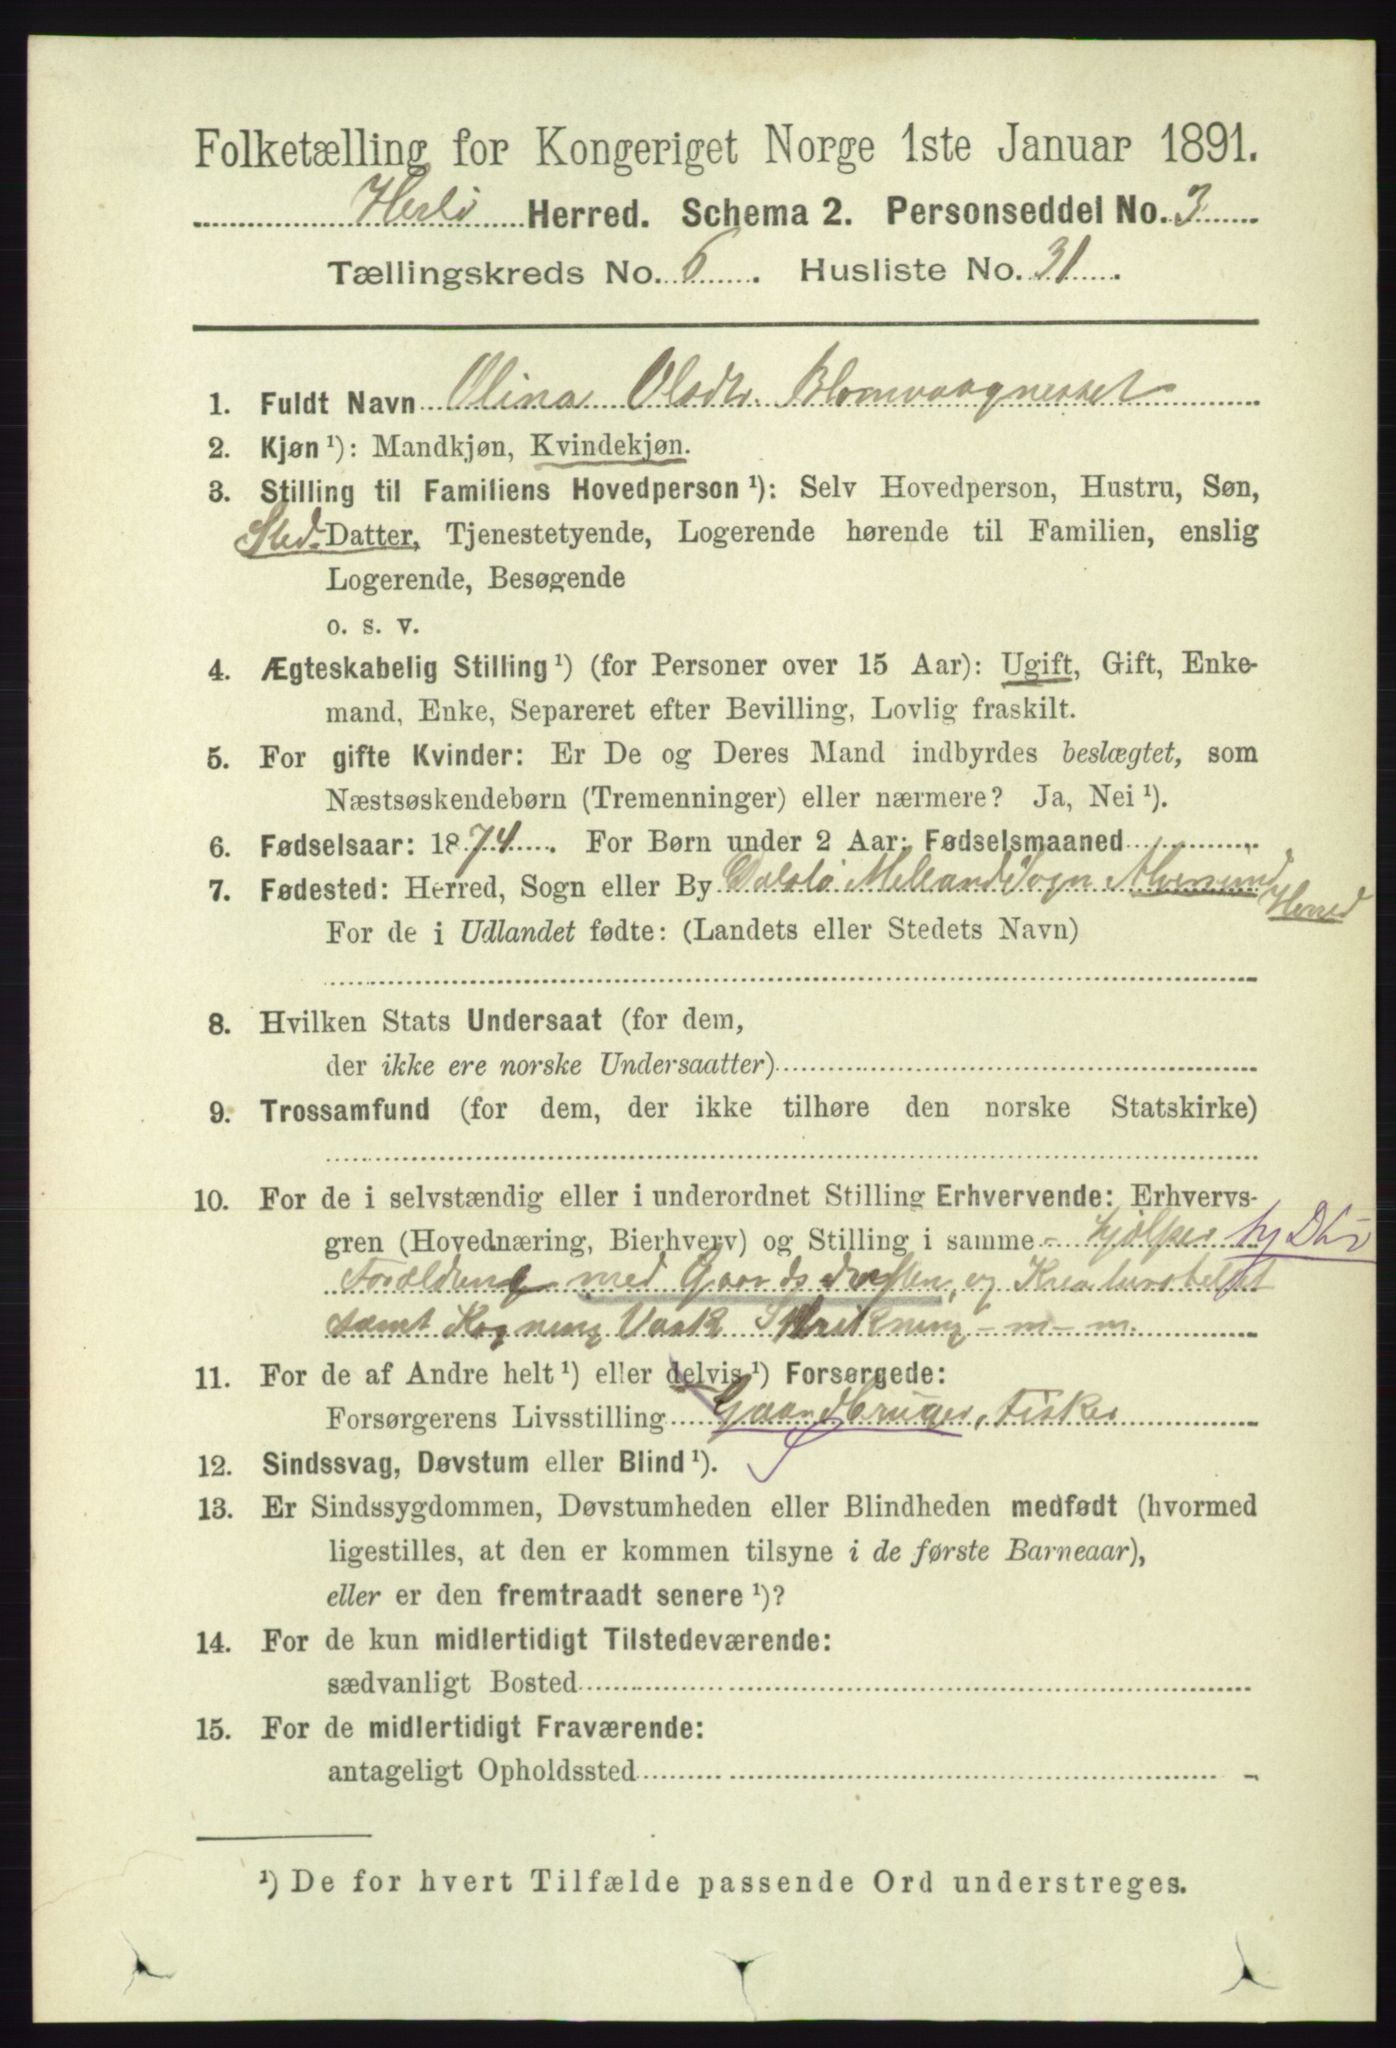 Folketælling for Kongeriget Norge 1ste Januar 1891.
Herlø Herred. Schema 2. Personseddel No. 3
Tællingskreds No. 6. Husliste No. 31.
1. Fuldt Navn Olina Olsdtr. Blomvaagnesset
2. Kjøn ¹): Mandkjøn, Kvindekjøn.
3. Stilling til Familiens Hovedperson ¹): Selv Hovedperson, Hustru, Søn,
Sted-Datter, Tjenestetyende, Logerende hørende til Familien, enslig
Logerende, Besøgende
o. s. v.
4. Ægteskabelig Stilling ¹) (for Personer over 15 Aar): Ugift, Gift, Enke-
mand, Enke, Separeret efter Bevilling, Lovlig fraskilt.
5. For gifte Kvinder: Er De og Deres Mand indbyrdes beslægtet, som
Næstsøskendebørn (Tremenninger) eller nærmere? Ja, Nei ¹).
6. Fødselsaar: 1874. For Børn under 2 Aar: Fødselsmaaned
7. Fødested: Herred, Sogn eller By Melland Sogn Alversund Herred
For de i Udlandet fødte: (Landets eller Stedets Navn)
8. Hvilken Stats Undersaat (for dem,
der ikke ere norske Undersaatter)
9. Trossamfund (for dem, der ikke tilhøre den norske Statskirke)
10. For de i selvstændig eller i underordnet Stilling Erhvervende: Erhvervs-
gren (Hovednæring, Bierhverv) og Stilling i samme - hjelper
Forældrene med Gaardsdriften, og Kreaturstellet
samt Kogning Vask Strikning - m - m.
11. For de af Andre helt ¹) eller delvis ¹) Forsørgede:
Forsørgerens Livsstilling Gaardbruger, Fisker
12. Sindssvag, Døvstum eller Blind ¹).
13. Er Sindssygdommen, Døvstumheden eller Blindheden medfødt (hvormed
ligestilles, at den er kommen tilsyne i de første Barneaar),
eller er den fremtraadt senere ¹)?
14. For de kun midlertidigt Tilstedeværende:
sædvanligt Bosted
15. For de midlertidigt Fraværende:
antageligt Opholdssted
¹) De for hvert Tilfælde passende Ord understreges.